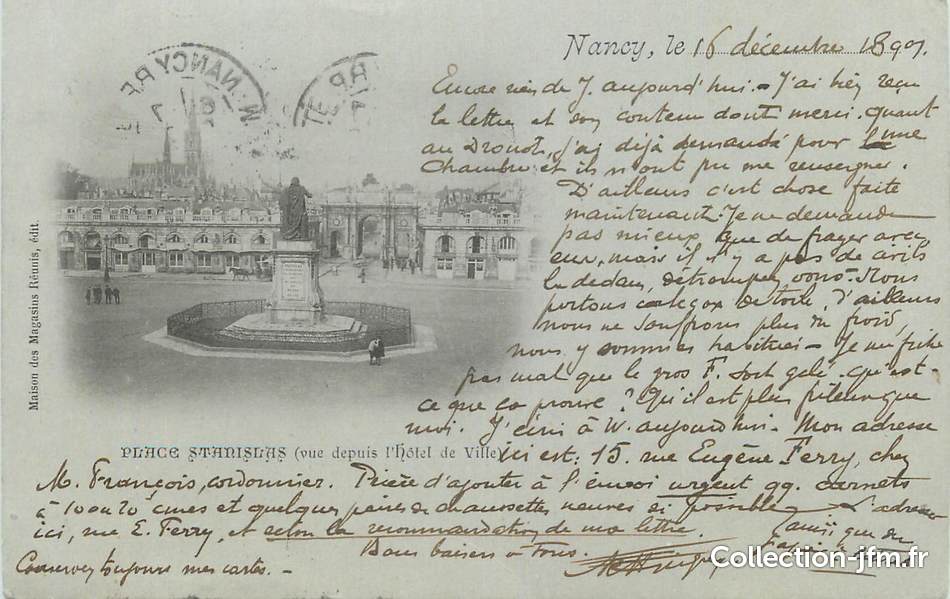 Nancy, le 16 décembre 1897.
Encore rien de J. aujourd'hui. - J'ai bien reçu
la lettre et son contenu dont merci. Quant
au Drouot, j'ai déjà demandé pour une
chambre et ils n'ont pu me renseigner.
D'ailleurs c'est chose faite
maintenant. Je ne demande
pas mieux que de frayer avec
eux, mais il n'y a pas de
là dedans, détrompez vous. Nous
portons caleçon de toile, d'ailleurs
nous ne souffrons plus du froid,
nous y sommes habitués - Je me fiche
pas mal que le gros F. soit gelé. Qu'est-
ce que ça prouve? Qu'il est plus frileux que
moi. J'écris à W. aujourd'hui - Mon adresse
PLACE STANISLAS (vue depuis l'hôtel de Ville)
ici est: 15, rue Eugène Ferry, chez
M. François, cordonnier. Prière d'ajouter à l'envoi urgent qq. carnets
à 10 ou 20 cmes et quelques paires de chaussettes neuves si possible L'adresse
ici, rue E. Ferry, et selon la recommandation de ma lettre.
ainsi que du
papier à
Bons baisers à Tous.
Conservez toujours mes cartes. -
Maison des Magasins Réunis, édit.
NANCY
Collection-jfm.fr